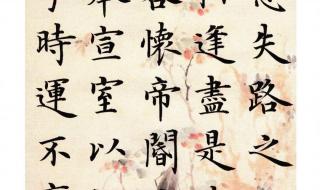 悲失路之
逢盡是
客懷帝閽
奉宣室以
乎時運不齊